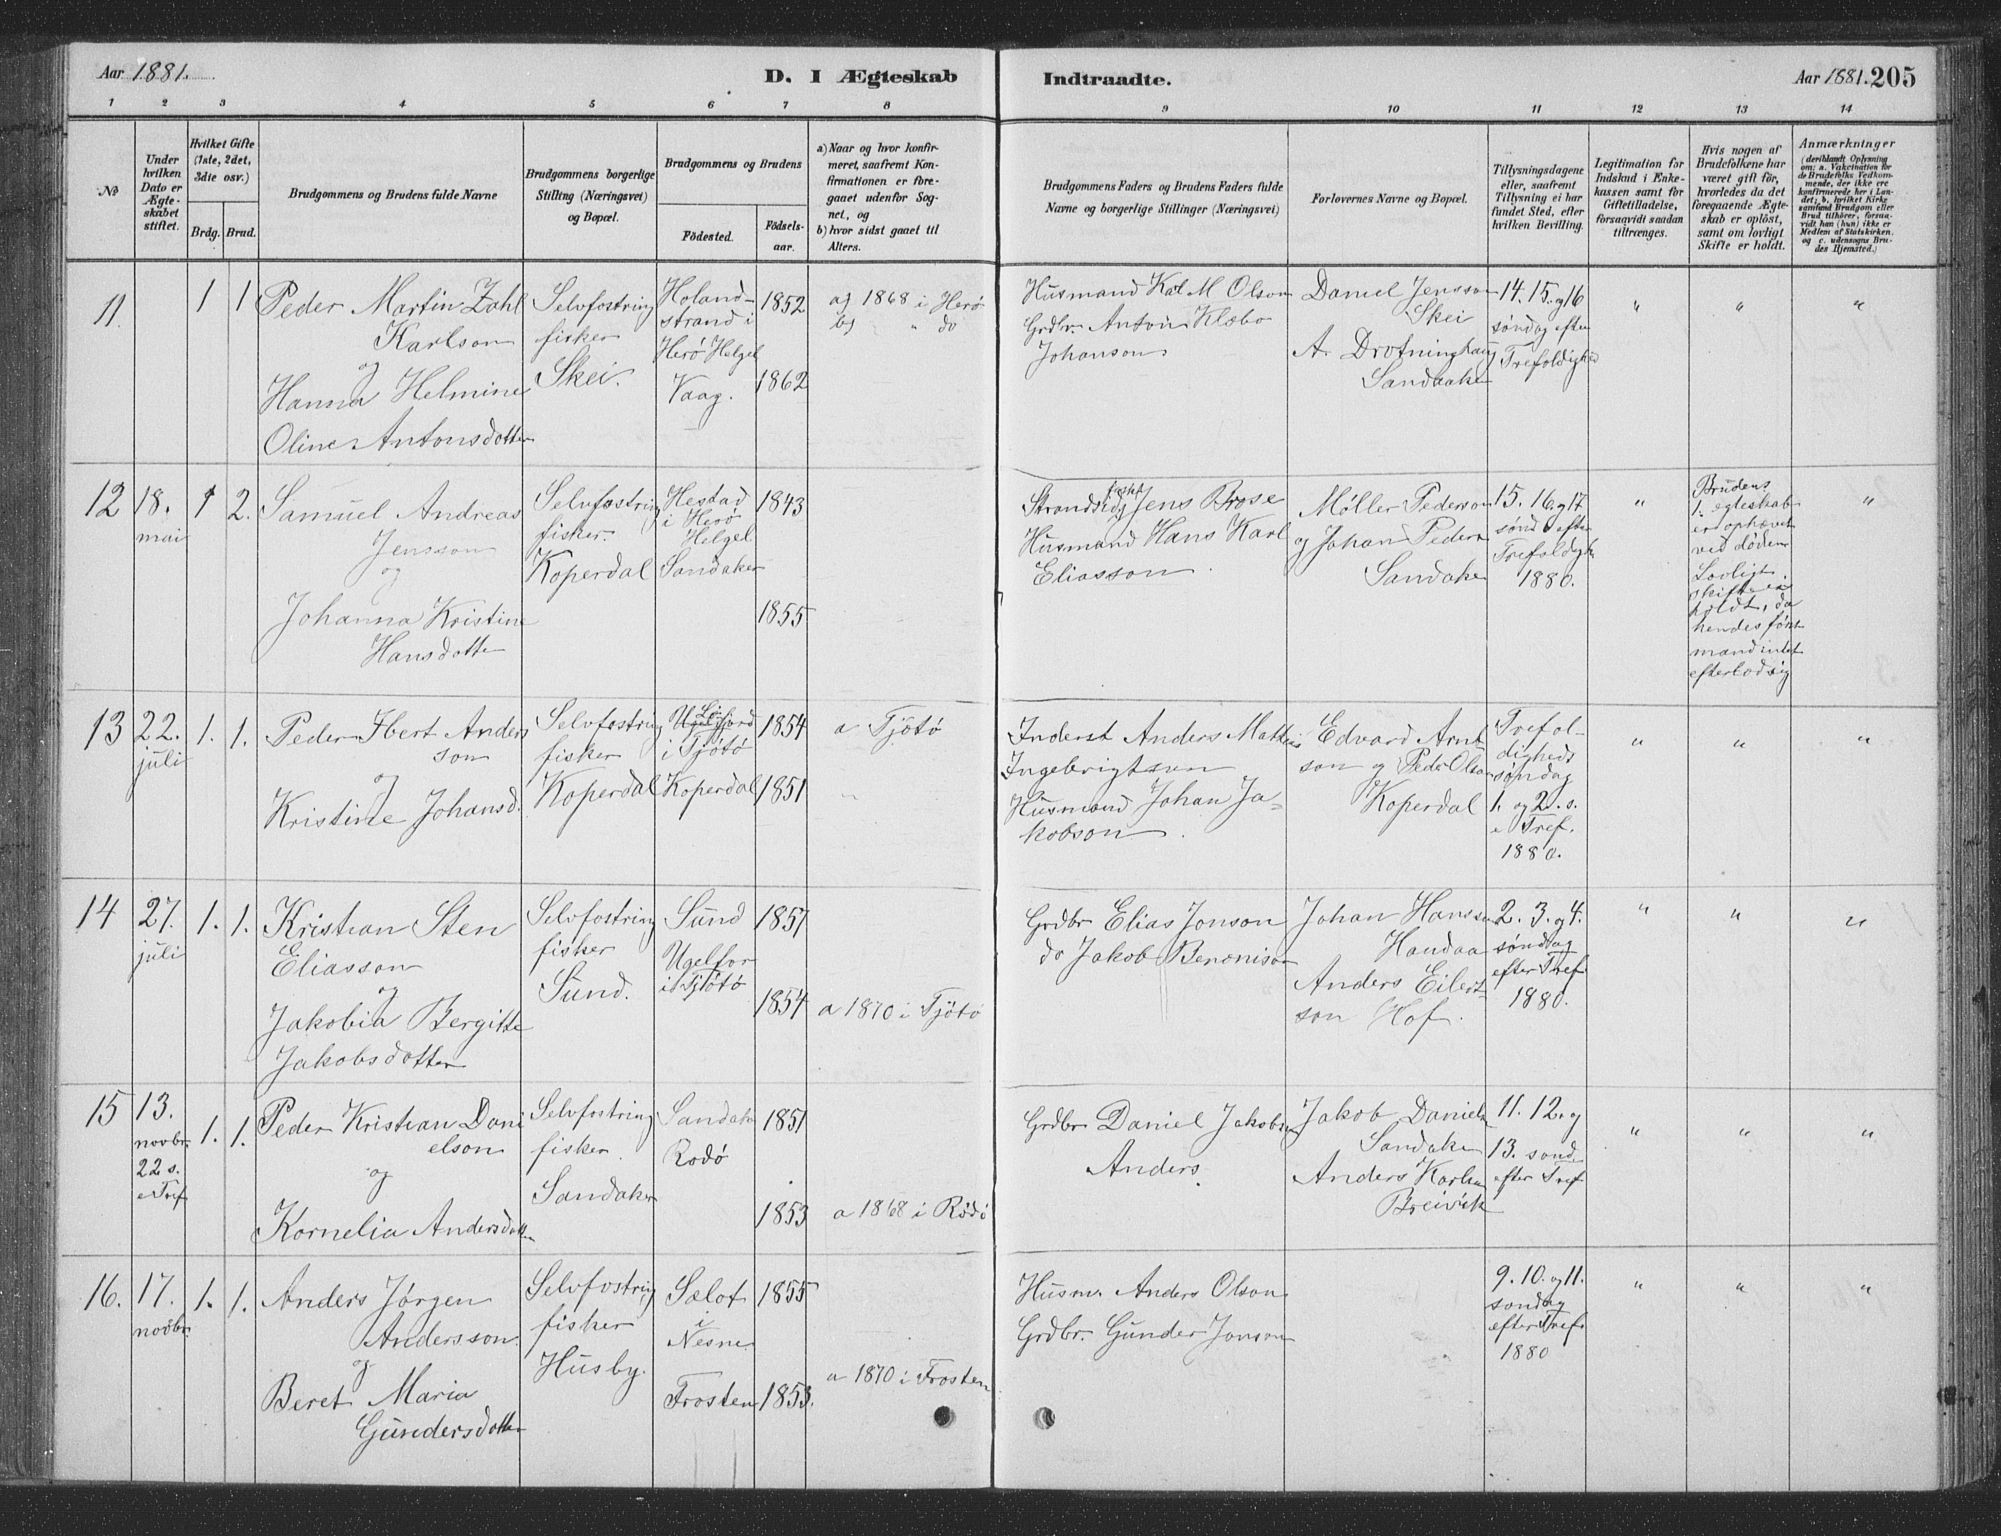 Aar 1881.
D. I Ægteskab
Indtraadte.
Aar 1881. 205
1 2 3 4 5 6 7 8 9 10 11 12 13 14
No
Under hvilken Dato er Ægteskabet stiftet.
Hvilket Gifte (1ste, 2det, 3die osv.)
Brdg. Brud.
Brudgommens og Brudens fulde Navne
Brudgommens borgerlige Stilling (Næringsvei) og Bopæl.
Brudgommens og Brudens
Fødested.
Fødselsaar.
a) Naar og hvor konfirmeret, saafremt Konfirmationen er foregaaet udenfor Sognet, og
b) hvor sidst gaaet til Alters.
Brudgommens Faders og Brudens Faders fulde Navne og borgerlige Stillinger (Næringsvei)
Forlovernes Navne og Bopæl.
Tillysningsdagene eller, saafremt Tillysning ei har fundet Sted, efter hvilken Bevilling.
Legitimation for Indskud i Enkekassen samt for Giftetilladelse, forsaavidt saadan tiltrænges.
Hvis nogen af Brudefolkene har været gift før, hvorledes da det foregaaende Ægteskab er opløst, samt om lovligt Skifte er holdt.
Anmærkninger
(deriblandt Oplysning om: a. Vakcination for de Brudefolks Vedkommende, der ikke ere konfirmerede her i Landet; b. hvilket Kirkesamfund Brudgom eller Brud tilhører, forsaavidt han (hun) ikke er Medlem af Statskirken, og c. udensogns Brudes Hjemsted.)
11.
1 1
Peder Martin Zahl
Karlson
og
Hanna Helmine
Oline Antonsdotter
Selvfostring
fisker
Skei.
Holand-
strand i
Herø Helgel
Vaag.
1852
1862
a) 1868 i Herø
b) " " do
Husmand Karl M Olson
Grdbr. Anton Klæbo
Johanson
Daniel Jensson
Skei
A. Drotninghaug
Sandaaker
14. 15. og 16
søndag efter
Trefoldighed
" " "
12
18.
mai
1 2.
Samuel Andreas
Jensson
og
Johanna Kristine
Hansdotter
Selvfostring
fisker.
Koperdal
Hestad
i Herø
Helgel
Sandaker
1843
1855
Strandsidd Jens Brose
Husmand Hans Karl
Eliasson
Møller Pederson
og Johan Peders
Sandaker
15. 16. og 17
sønd efter
Trefoldigh
1880.
"
Brudens
1. egteskab
er ophævet
ved døden
Lovligt
skifte ei
holdt, da
hendes først
mand intet
efterlod sig
"
13
22.
juli
1. 1.
Peder Hbert Anders
son
og
Kristine Johansd.
Selvfostring
fisker
Koperdal
i Tjøtø
Koperdal
1854
1851
a Tjøtø
"
Inderst Anders Mattis
Ingebrigtson
Husmand Johan Ja-
kobson
Edvard Arnt
son og Peder Olson
Koperdal
Trefol-
digheds
søndag
1. og 2. s.
e Tref.
1880.
" " "
14
27.
juli
1. 1.
Kristian Sten
Eliasson
og
Jakobia Bergitte
Jakobsdotter
Selvfostring
fisker
Sund.
Sund
Ugelfor
i Tjøtø
1857
1854
a 1870 i Tjøtø
Grdbr Elias Jonson
do Jakob Benonison
Johan Hansso
Handaa
Anders Eilert-
son Hof.
2. 3. og 4.
søndag
efter Tref
1880.
" " "
15
13.
novbr.
22 s.
e Tref
1. 1.
Peder Kristian Dani
elson
og
Kornelia Andersdotter
Selvfostring
fisker.
Sandaker
Sandaker
Rødø
1851
1853
a 1868 i Rødø
Grdbr Daniel Jakobson
Anders.
Jakob Daniels
Sandaker
Anders Karlsen
Breivik
11. 12. og
13. sønd.
efter Tref
" " "
16.
17.
novbr.
1. 1.
Anders Jørgen
Andersson
og
Beret Maria
Gundersdotter
Selvfostring
fisker
Husby.
Sælot
i
Nesne
Frosten
1855
1853.
a 1870 i Frosten
Husm. Anders Olson
Grdbr. Gunder Jonson
9. 10. og 11.
søndag
efter Tref
1880
" " "